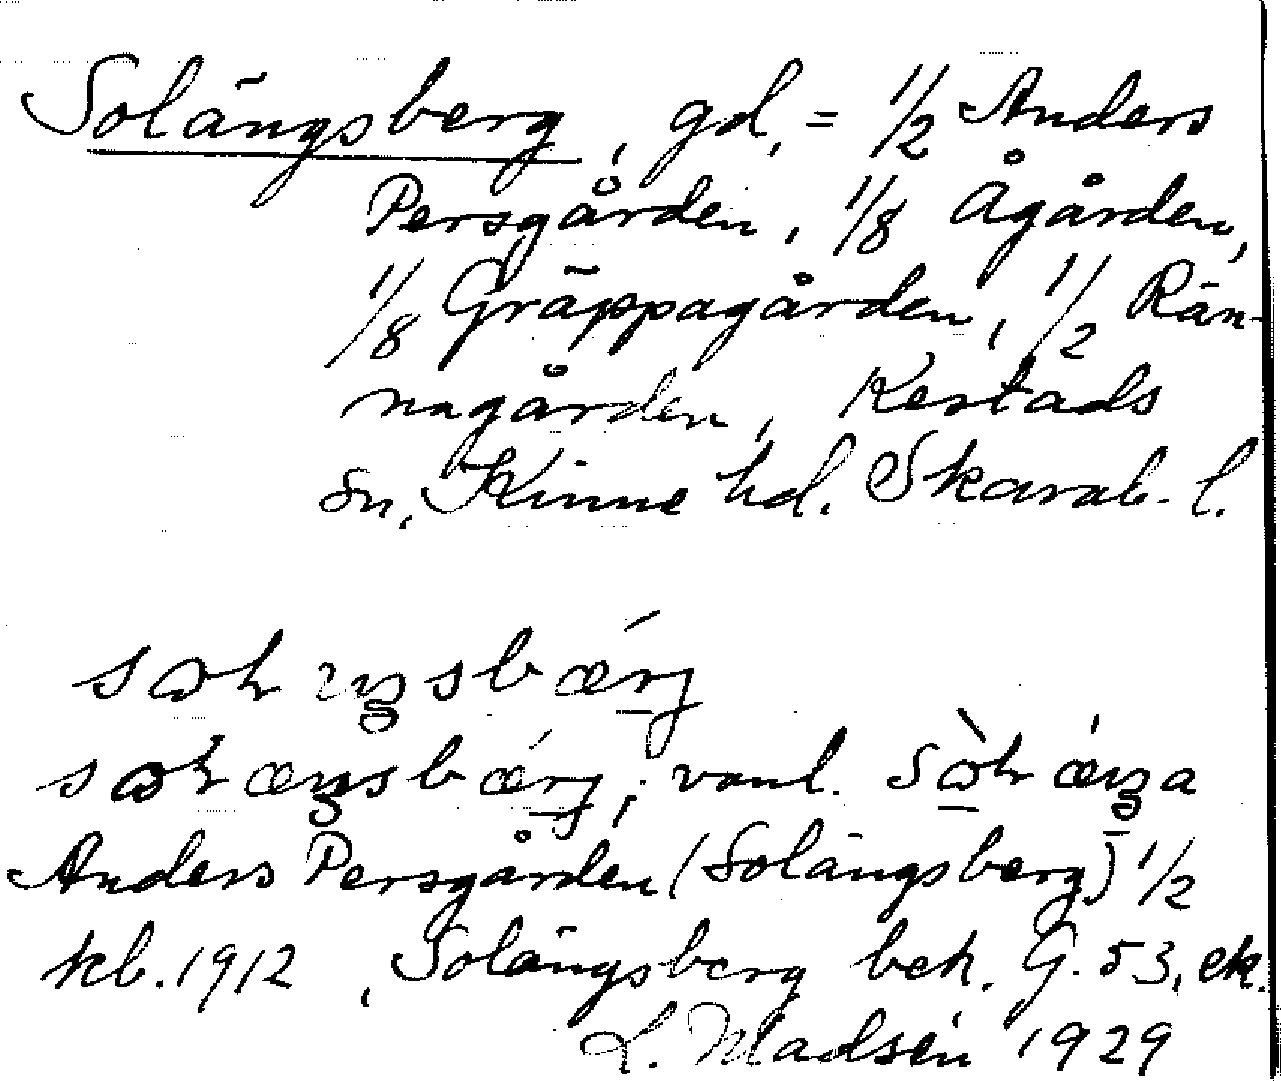 Solängsberg, gd, = 1/2 Anders
Persgården, 1/8 Ågården,
1/8 Gräppagården, 1/2 Rän-
nagården, Kestads
sn, Kinne hd. Skarab. l.
vanl.
Anders Persgården (Solängsberg) 1/2
kb. 1912, Solängsberg bek. G. 53, ek.
L. Madsén 1929